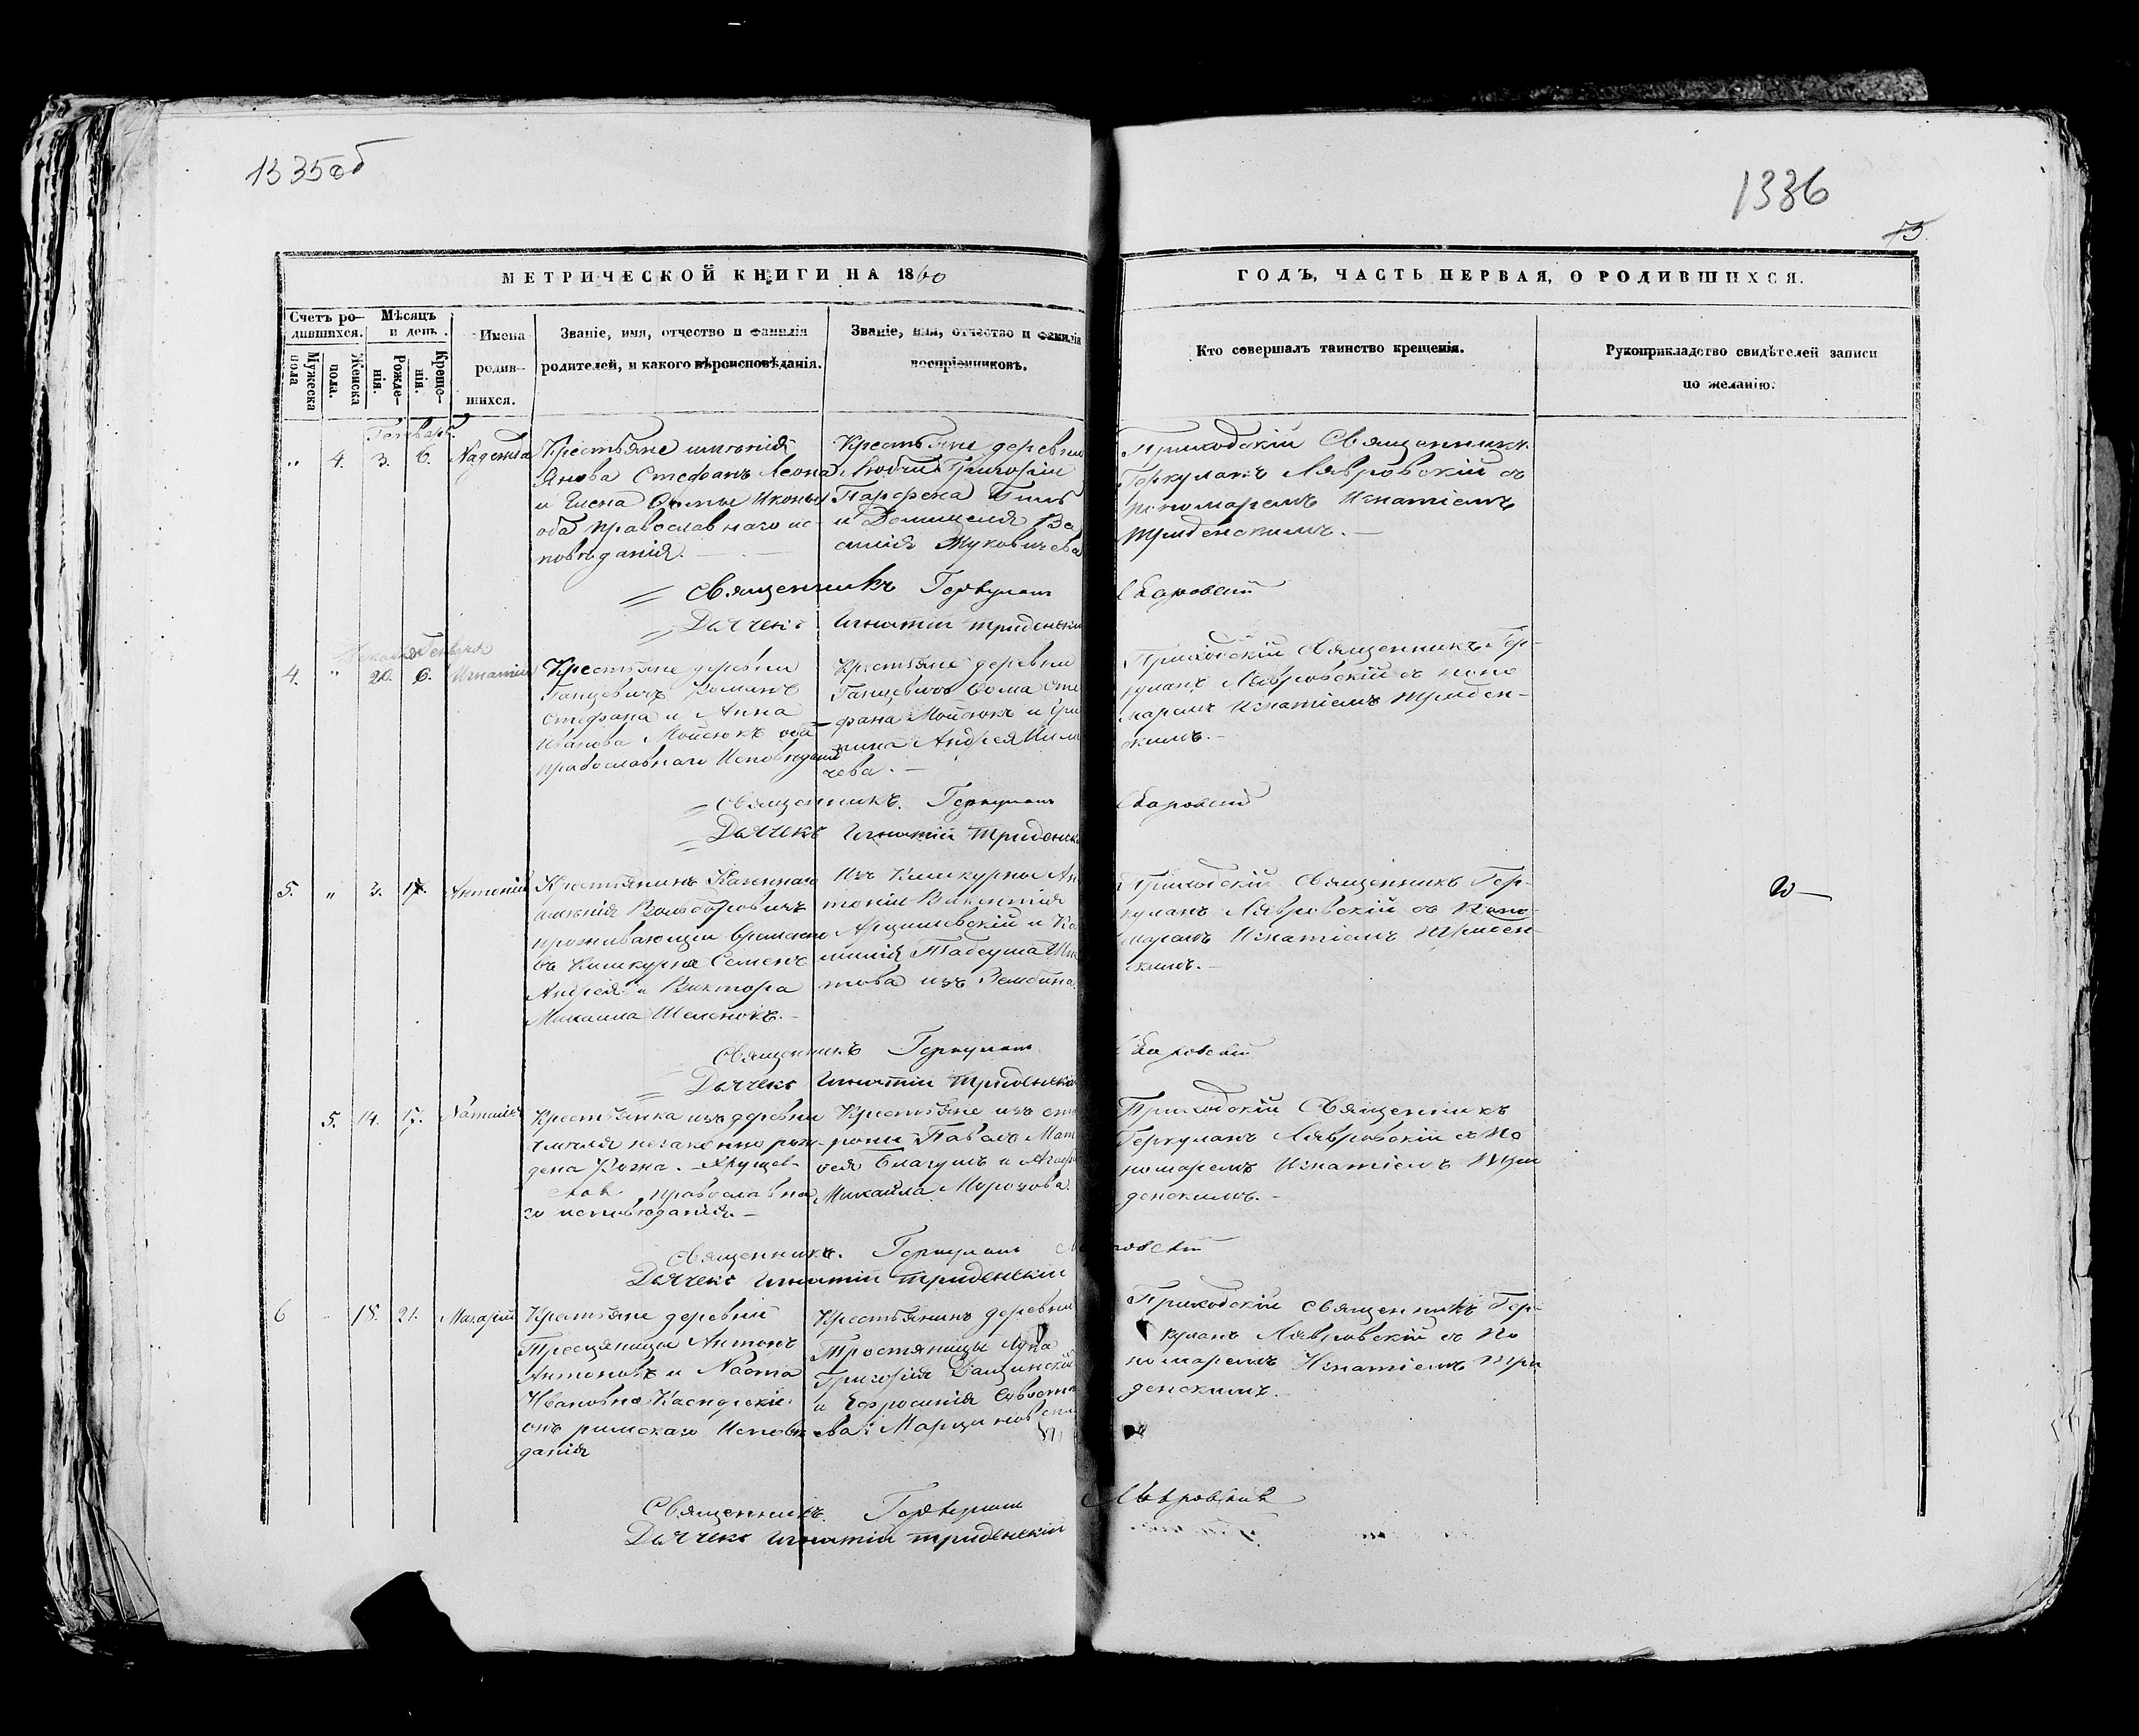 1335об
1336
75
МЕТРИЧЕСКОЙ КНИГИ НА 1860
ГОДЪ, ЧАСТЬ ПЕРВАЯ, О РОДИВШИХСЯ.
Счетъ ро-
дившихся.
Мужеска пола
Женска пола.
Мѣсяцъ
и день.
Рожде-
нія.
Креще-
нія.
Имена
родив-
шихся.
Званіе, имя, отчество и фамилія
родителей, и какого вѣроисповѣданія.
Званіе, имя, отчество и фамилія
воспріемниковъ.
Кто совершалъ таинство крещенія.
Рукоприкладство свидѣтелей записи
по желанію.
Генварь
" 4. 3. 6. Надежда
Крестьяне имѣнія
Янова Стефанъ Леона
и Елена Фомы
оба православнаго ис-
повѣданія. —
Крестьяне деревни
Любчи Григорій
Парфена
и Домицеля Ва
силія Жуковичева
Приходскій Священникъ
Геркуланъ Лявровскій съ
пономаремъ Игнатіемъ
Триденскимъ. —
Священникъ Геркуланъ Лавровскій
Дьячекъ Игнатій Триденскій
Декабря Генваря
4. " 20. 6. Игнатій
Крестьяне деревни
Ганцевичъ Романъ
Стефана и Анна
Иванова Мойсюкъ оба
православнаго Исповѣданія
Крестьяне деревни
Ганцевичъ Фома Сте
фана Мойсюкъ и
Андрея
чева. —
Приходскій Священникъ Гер-
куланъ Лявровскій съ поно
маремъ Игнатіемъ Триден-
скимъ. —
Священникъ. Геркуланъ Лавровскій
Дьячекъ Игнатій Триденскій
5. " 3. 17. Антоній
Крестьянинъ Казеннаго
имѣнія
проживающій временно
въ Кимкурна Семенъ
Андрея и Виктора
Михаила Шеленокъ. —
Изъ Кимкурны Ан
тоній Викентія
и Ка
милія Тадеуша
това изъ Зембина.
Приходскій Священникъ Гер-
куланъ Лявровскій съ Поно
маремъ Игнатіемъ Триден-
скимъ. —
Священникъ Геркуланъ Лавровскій
Дьячекъ Игнатій Триденскій
5. 14. 17. Наталія
Крестьянка изъ деревни
незаконно рож-
дена
православна
го исповѣданія. —
Крестьяне изъ
Павелъ Мат
ѳея и
Михайла Морозова.
Приходскій Священникъ
Геркуланъ Лявровскій съ По
номаремъ Игнатіемъ Три
денскимъ. —
Священникъ. Геркуланъ Лавровскій
Дьячекъ Игнатій Триденскій
6 " 18. 21. Макарій
Крестьяне деревни
Антонъ
Антоновъ и Наста
Ивановна Касперскіе
онъ римскаго Исповѣ
данія
Крестьянинъ деревни
Тростяницы Лука
Григорія
и Ефросинія
Приходскій Священникъ Гер-
куланъ Лявровскій съ По
номаремъ Игнатіемъ Три
денскимъ.
Священникъ. Геркуланъ Лавровскій
Дьячекъ Игнатій Триденскій